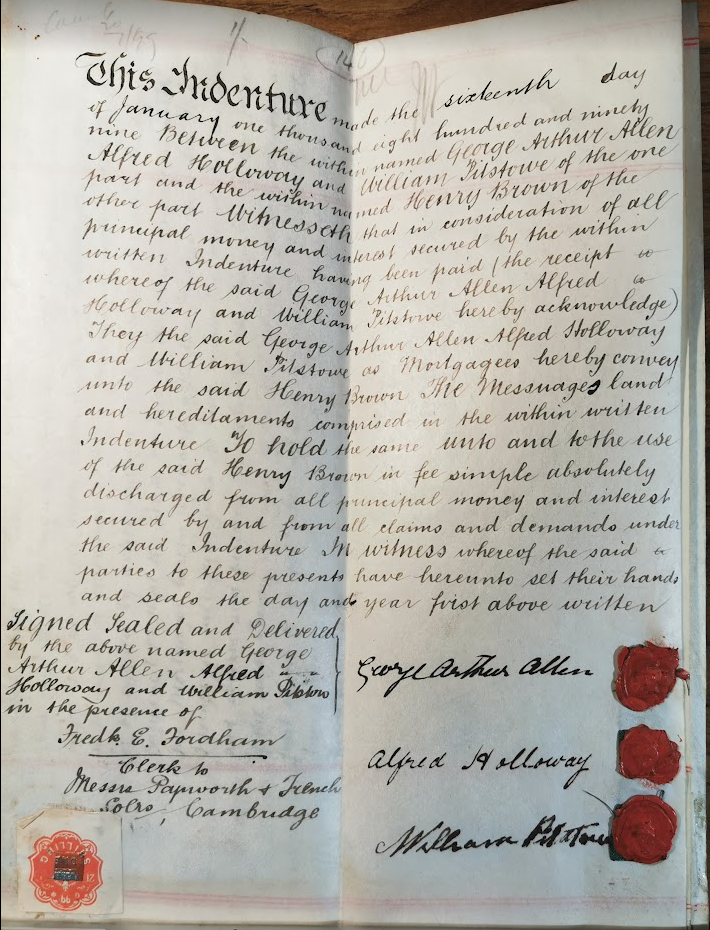 1/-
146
This Indenture made the sixteenth day
of January one thousand eight hundred and ninety
nine Between the within named George Arthur Allen
Alfred Holloway and William Pitstowe of the one
part and the within named Henry Brown of the
other part Witnesseth that in consideration of all
principal money and interest secured by the within
written Indenture having been paid (the receipt
whereof the said George Arthur Allen Alfred
Holloway and William Pitstowe hereby acknowledge)
They the said George Arthur Allen Alfred Holloway
and William Pitstowe as Mortgagees hereby convey
unto the said Henry Brown The Messuages land
and hereditaments comprised in the within written
Indenture To hold the same unto and to the use
of the said Henry Brown in fee simple absolutely
discharged from all principal money and interest
secured by and from all claims and demands under
the said Indenture In witness whereof the said
parties to these presents have hereunto set their hands
and seals the day and year first above written
Signed Sealed and Delivered
by the above named George
Arthur Allen Alfred
Holloway and William Pitstow
in the presence of
Fredk. E. Fordham
Clerk to
Messrs Papworth & French
Solrs, Cambridge
George Arthur Allen
Alfred Holloway
William Pitstow
SHILLING